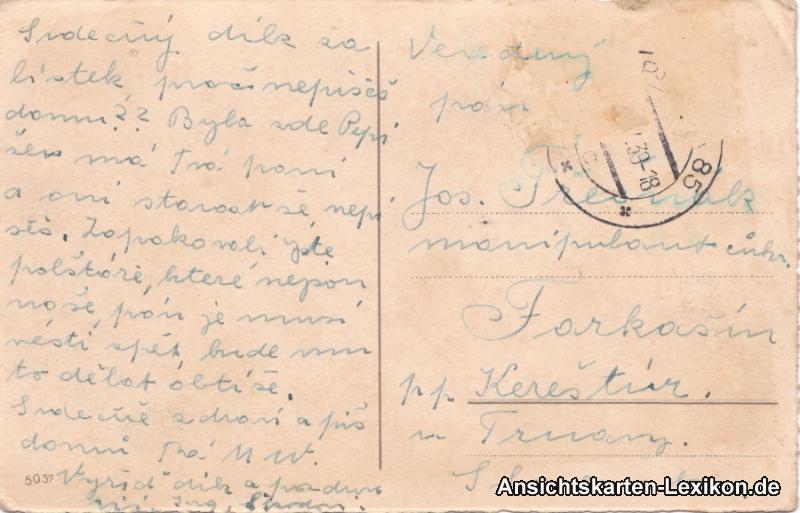 Srdečný dík za
lístek, proč nepíšeš
domu?? Byla zde Pepi
má Tvá paní
a oni starost že nepí
šeš. Zapakovali jste
polštáře, které nejsou
naše, pán je musí
vésti zpět, bude mu
to dělat obtíže.
Srdečně zdraví a piš
domů Tvá M W.
Vyřiď dík a pozdrav
Ing.
5037
Veledůný
pán
Jos.
manipulant cukr.
Farkašín
p.p. Kereštúr.
u Trnavy.
30.-18
85
Ansichtskarten-Lexikon.de